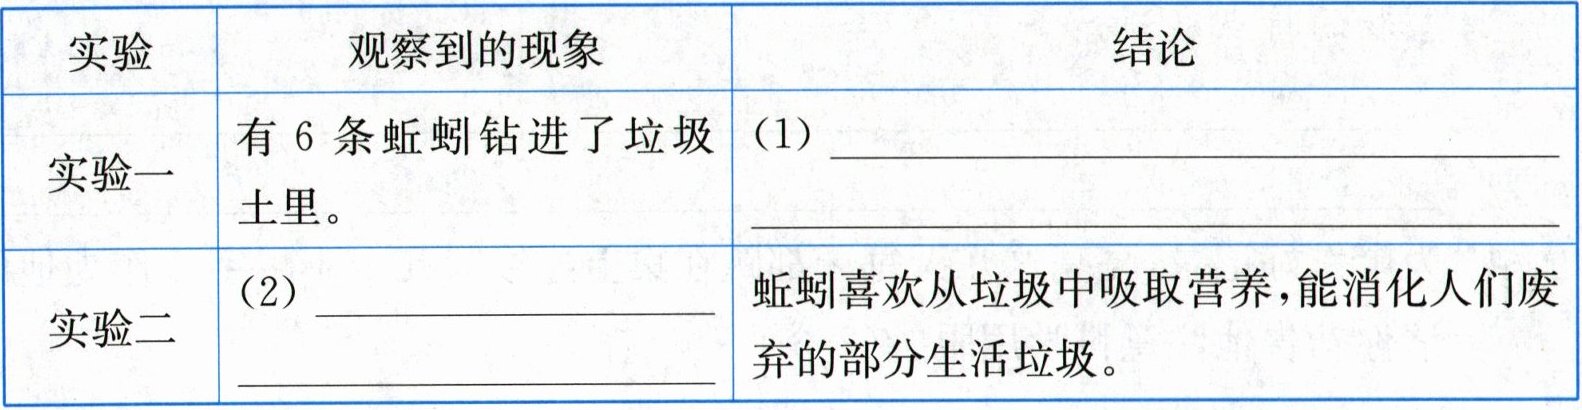 实验 观察到的现象 结论
实验一 有 6 条蚯蚓钻进了垃圾土里。 (1)
实验二 (2) 蚯蚓喜欢从垃圾中吸取营养,能消化人们废弃的部分生活垃圾。